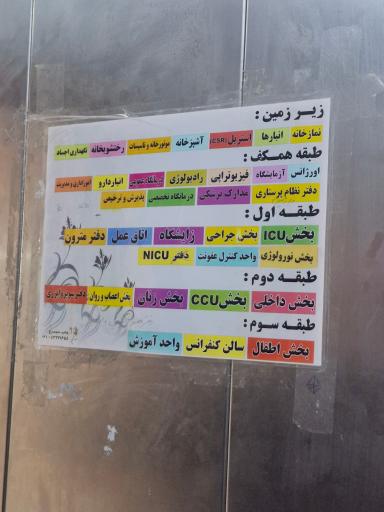 زیر زمین :
نمازخانه انبارها استریل(CSR) آشپزخانه موتورخانه و تاسیسات رختشویخانه نگهداری اجساد
طبقه همکف :
اورژانس آزمایشگاه فیزیوتراپی رادیولوژی درمانگاه عمومی انبار دارو امور اداری و مدیریت
دفتر نظام پرستاری مدارک پزشکی درمانگاه تخصصی پذیرش و ترخیص
طبقه اول :
بخش ICU بخش جراحی زایشگاه اتاق عمل دفتر مترون
بخش نورولوژی واحد کنترل عفونت دفتر NICU
طبقه دوم :
بخش داخلی بخش CCU بخش زنان بخش اعصاب و روان دفتر سوپروایزری
طبقه سوم :
بخش اطفال سالن کنفرانس واحد آموزش